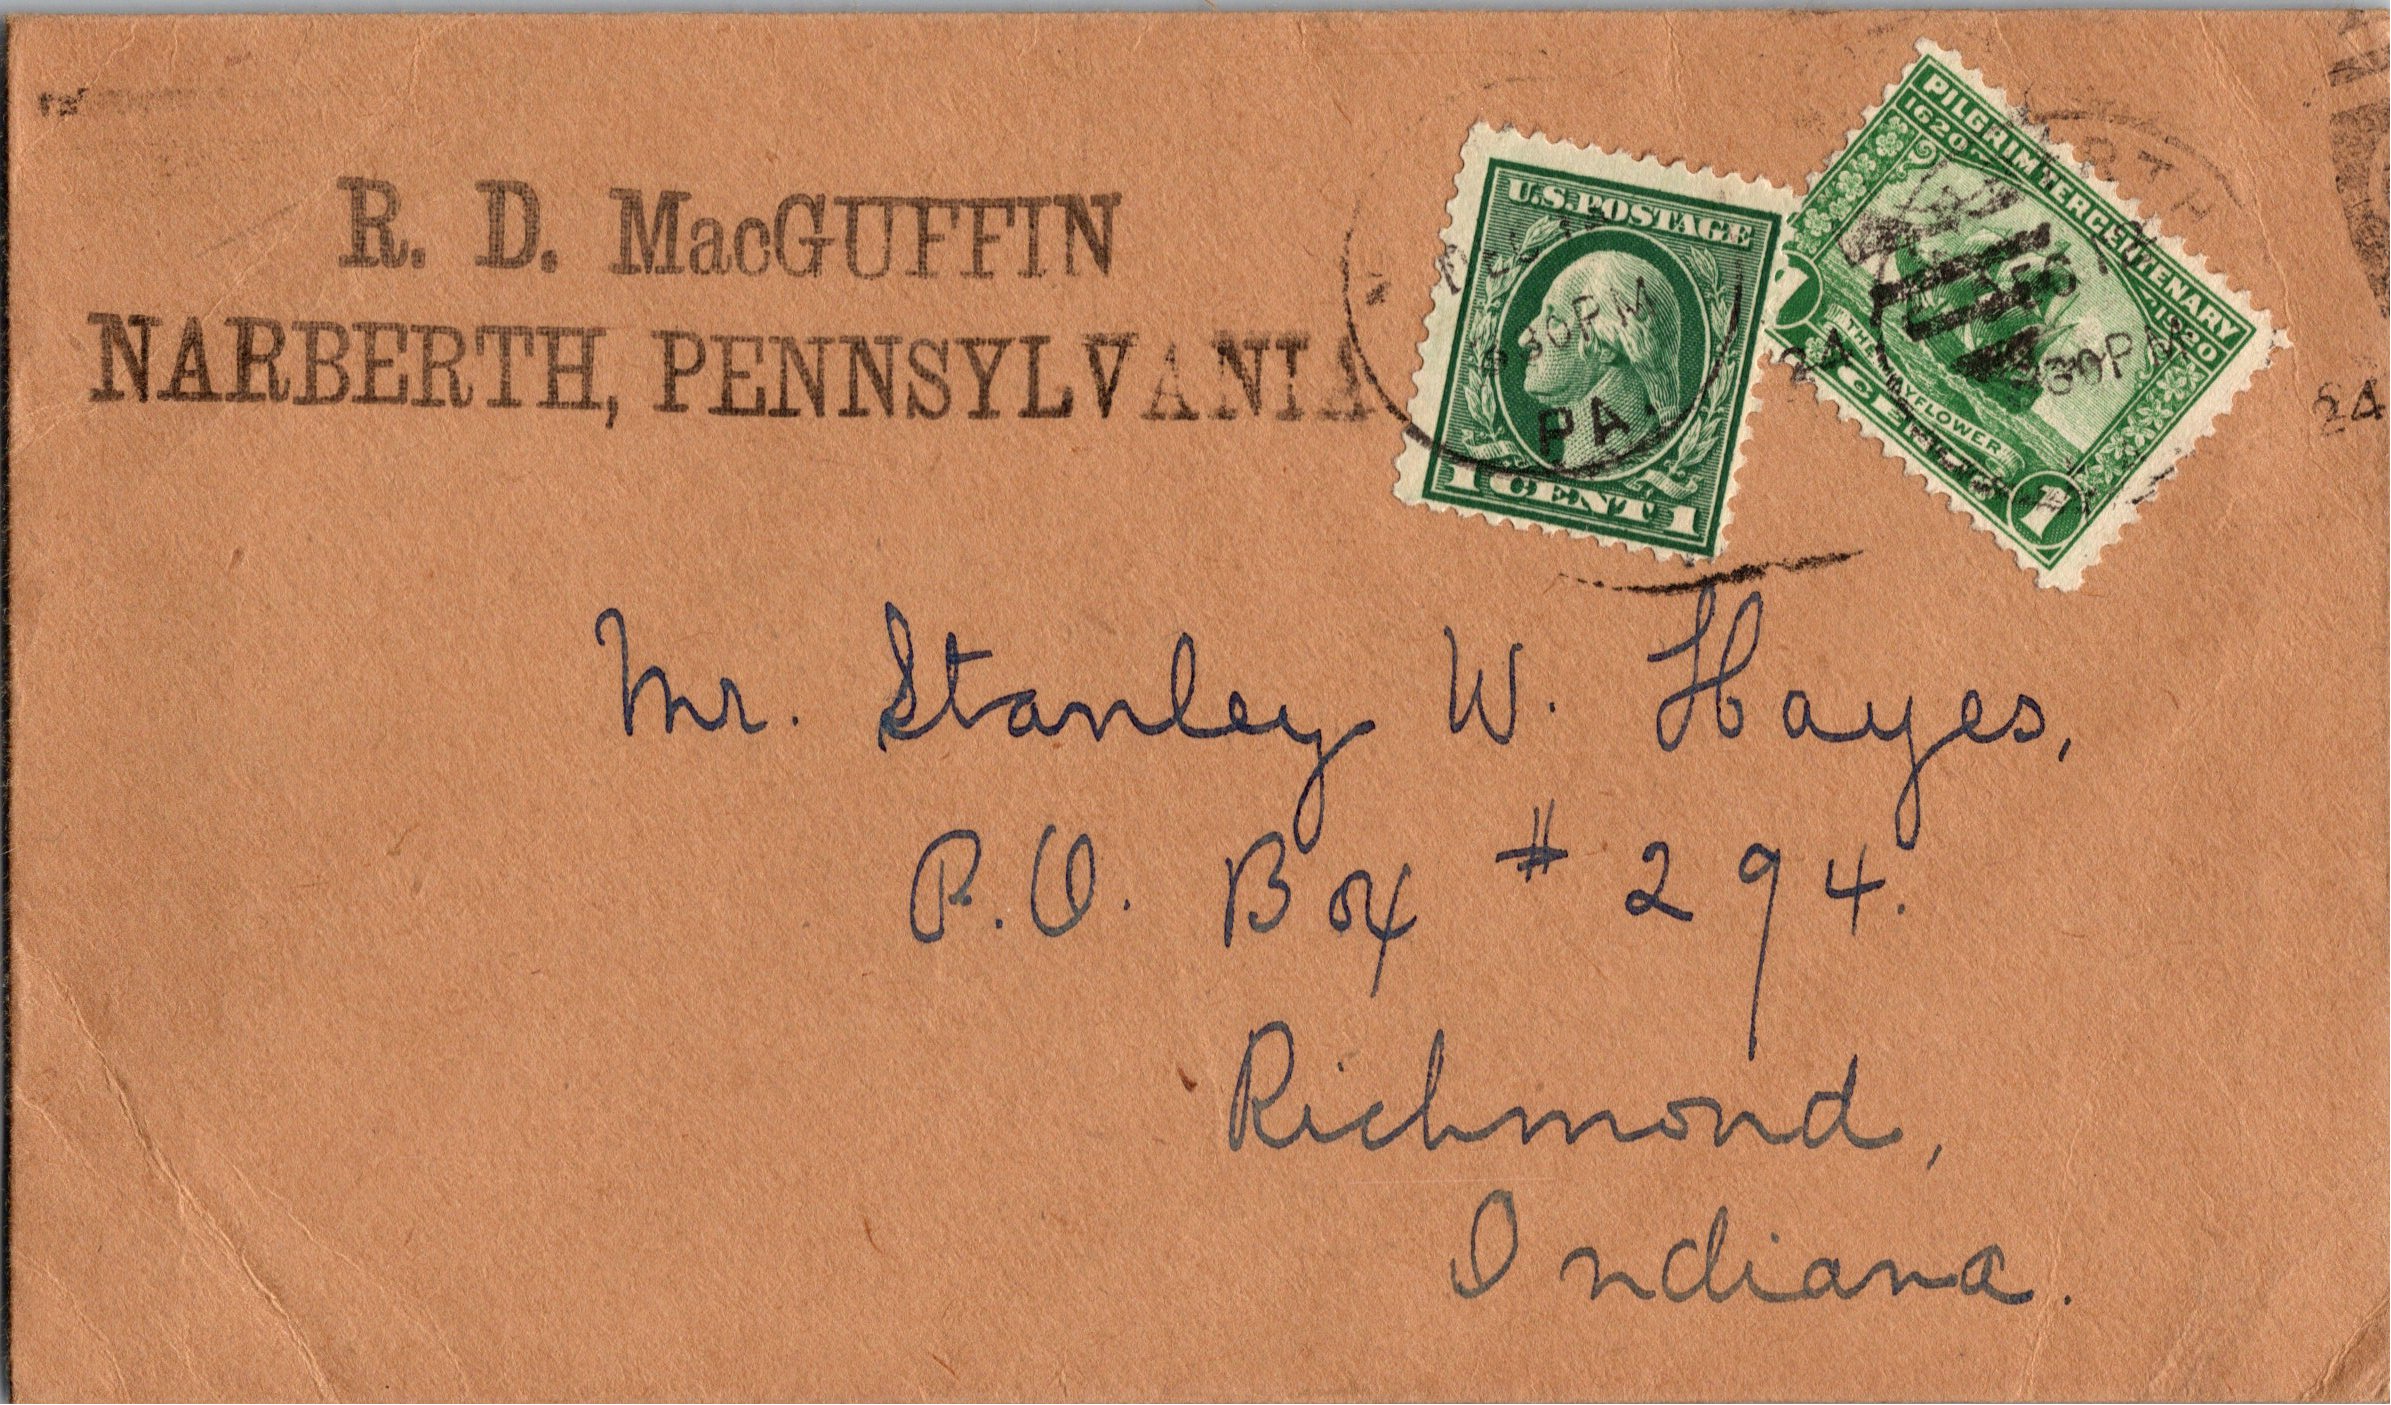 R. D. MacGUFFIN
NARBERTH, PENNSYLVANIA
U.S. POSTAGE
1 CENT 1
PILGRIM TERCENTENARY
1620 1920
THE MAYFLOWER
1 CENT 1
330PM
PA.
24
330PM
24
Mr. Stanley W. Hayes,
P.O. Box # 294.
Richmond,
Indiana.